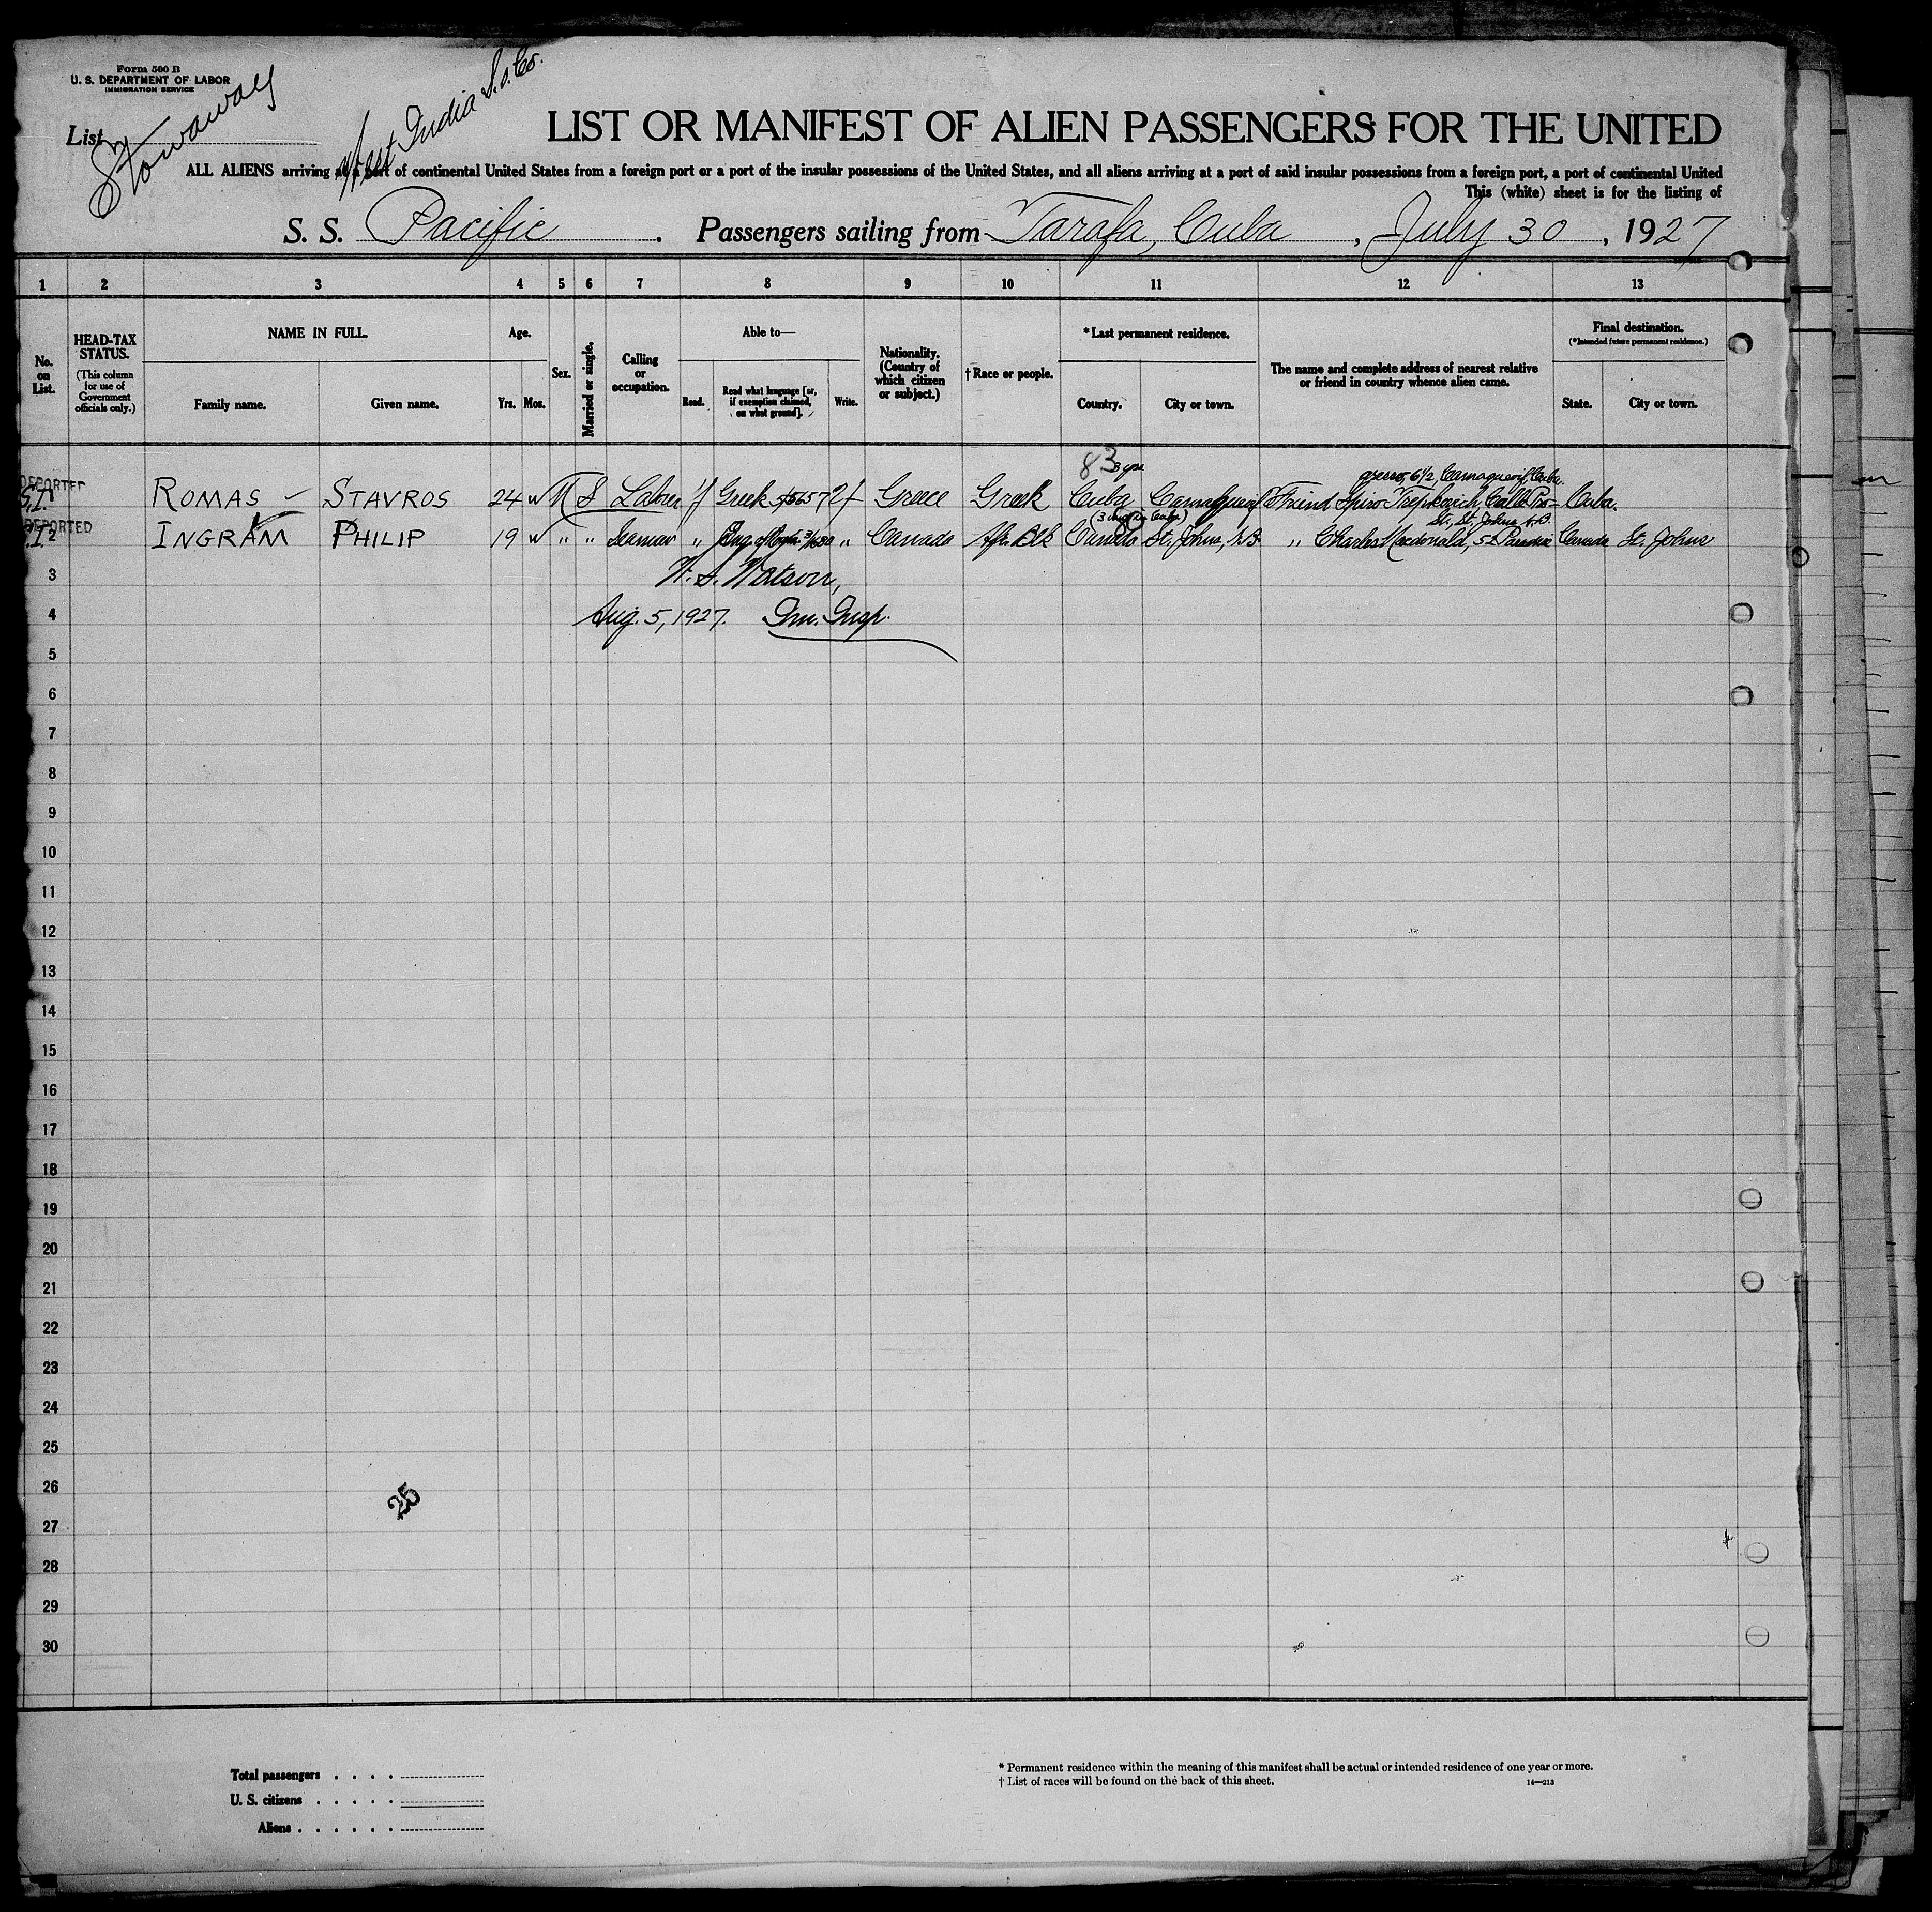 Form 500 B
U. S. DEPARTMENT OF LABOR
IMMIGRATION SERVICE
List
Stowaways
West India S.S. Co.
LIST OR MANIFEST OF ALIEN PASSENGERS FOR THE UNITED
ALL ALIENS arriving at a port of continental United States from a foreign port or a port of the insular possessions of the United States, and all aliens arriving at a port of said insular possessions from a foreign port, a port of continental United
This (white) sheet is for the listing of
S. S. Pacific . Passengers sailing from Tarafa, Cuba , July 30 , 1927
1 2 3 4 5 6 7 8 9 10 11 12 13
No. on List.
HEAD-TAX STATUS.
(This column for use of Government officials only.)
NAME IN FULL.
Family name. Given name.
Age.
Yrs. Mos.
Sex.
Married or single.
Calling or occupation.
Able to—
Read. Read what language [or, if exemption claimed, on what ground]. Write.
Nationality. (Country of which citizen or subject.)
† Race or people.
* Last permanent residence.
Country. City or town.
The name and complete address of nearest relative or friend in country whence alien came.
Final destination.
(* Intended future permanent residence.)
State. City or town.
83 3 yrs
DEPORTED
S.I. 1 ROMAS STAVROS 24 M S Labour Y Greek Y Greece Greek Cuba Friend Spiro Calle Cuba.
DEPORTED
S.I. 2 INGRAM PHILIP 19 " " Seaman " Eng. " Canada Afr. Blk Canada St. Johns, N.B. " Charles Macdonald, 52 Paradise Canada St. Johns
St., St. Johns N.B.
3
W. S. Watson,
4
Aug. 5, 1927. Im. Insp.
5
6
7
8
9
10
11
12
13
14
15
16
17
18
19
20
21
22
23
24
25
26
25
27
28
29
30
Total passengers . . . .
U. S. citizens . . . . .
Aliens . . . . . .
* Permanent residence within the meaning of this manifest shall be actual or intended residence of one year or more.
† List of races will be found on the back of this sheet.
14—213